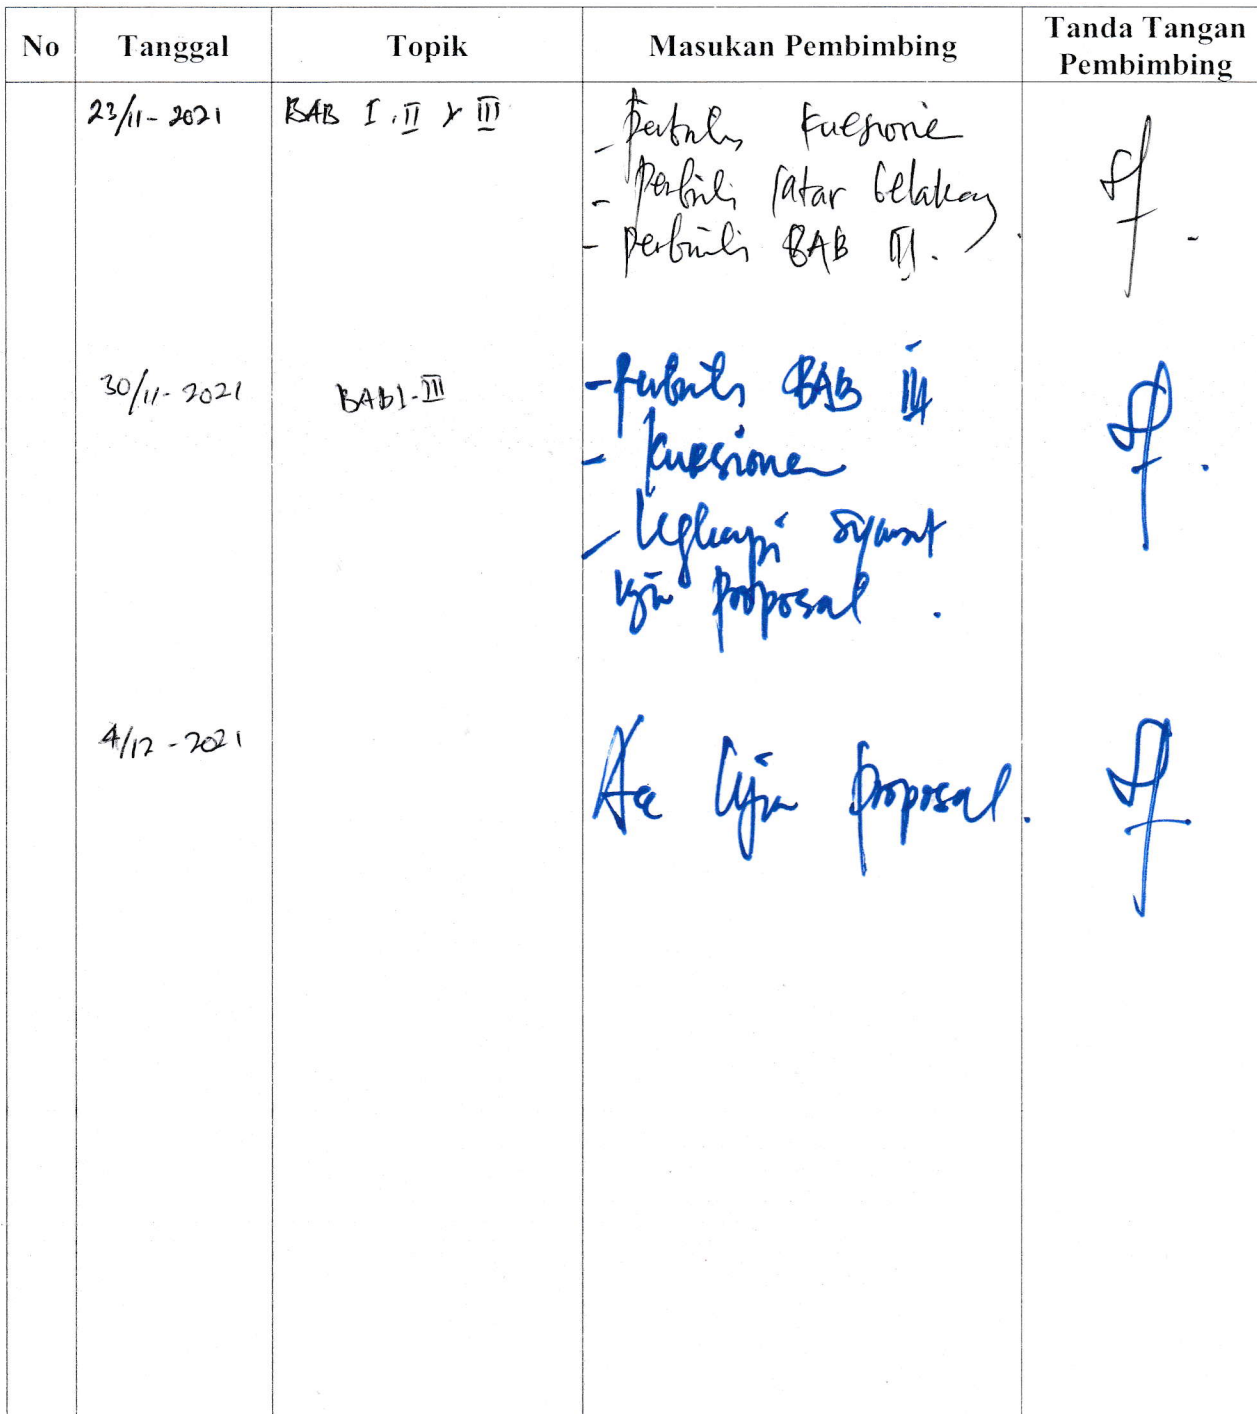 No Tanggal Topik Masukan Pembimbing Tanda Tangan Pembimbing
23/11-2021 BAB I, II & III - Perbaiki Kuesioner
- Perbaiki latar belakang
- Perbaiki BAB III.
30/11-2021 BAB I-III - Perbaiki BAB III
- Kuesioner
- Lengkapi syarat
ujian proposal.
4/12-2021 Acc Ujian proposal.